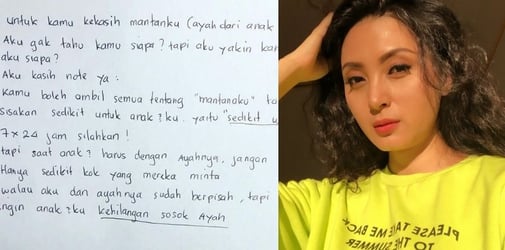 untuk kamu kekasih mantanku (ayah dari anak
Aku gak tahu kamu siapa? tapi aku yakin
aku siapa?
Aku kasih note ya :
Kamu boleh ambil semua tentang "mantanaku"
sisakan sedikit untuk anak²ku. yaitu "sedikit
7x24 jam silahkan!
tapi saat anak² harus dengan Ayahnya, jangan
Hanya sedikit kok yang mereka minta
walau aku dan ayahnya sudah berpisah, tapi
ingin anak²ku kehilangan sosok Ayah
PLEASE TAKE ME BACK
TO THE
SUMMER